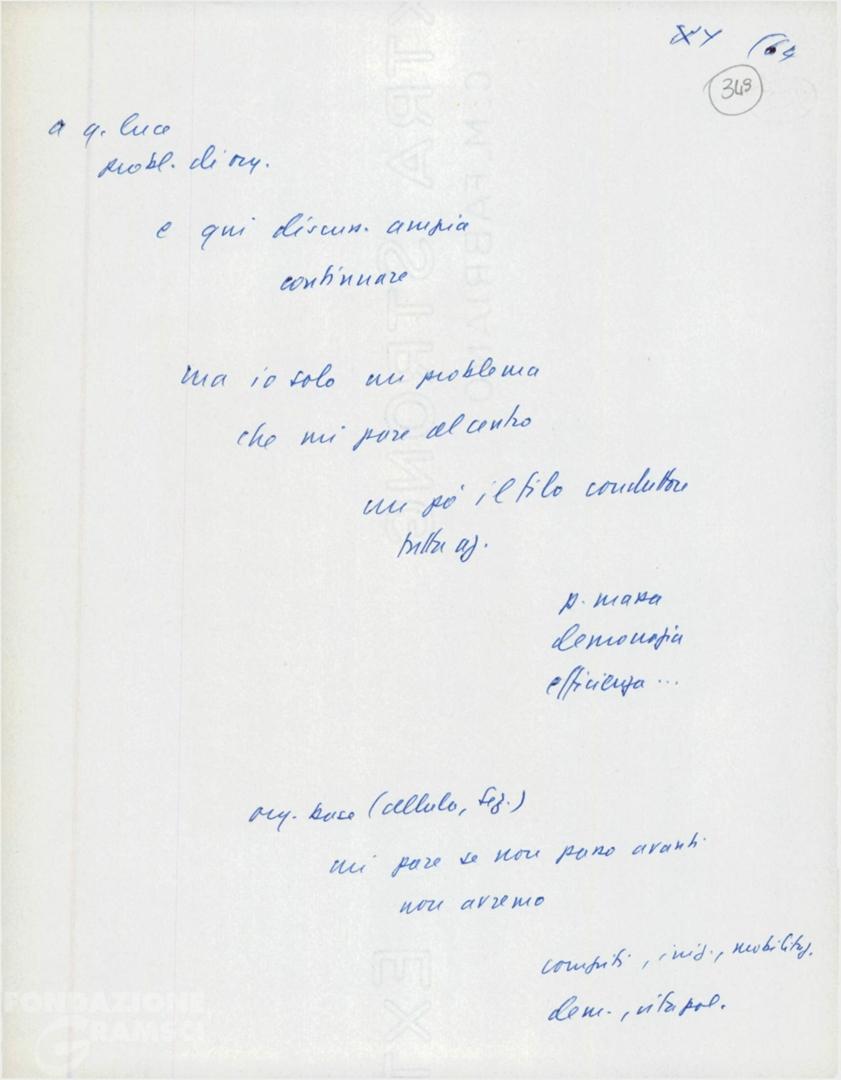 64
349
a q. luce
probl. di org.
e qui discuss. ampia
continuare
ma io solo un problema
che mi pare al centro
un pò il filo conduttore
tutta
p. massa
democrazia
efficienza ...
org. base (cellula, sez.)
mi pare se non passo avanti
non avremo
compiti, iniz., mobilitaz.
dem., vita pol.
FONDAZIONE
GRAMSCI
EXTRA STRONG
C.M. FABRIANO
EXT